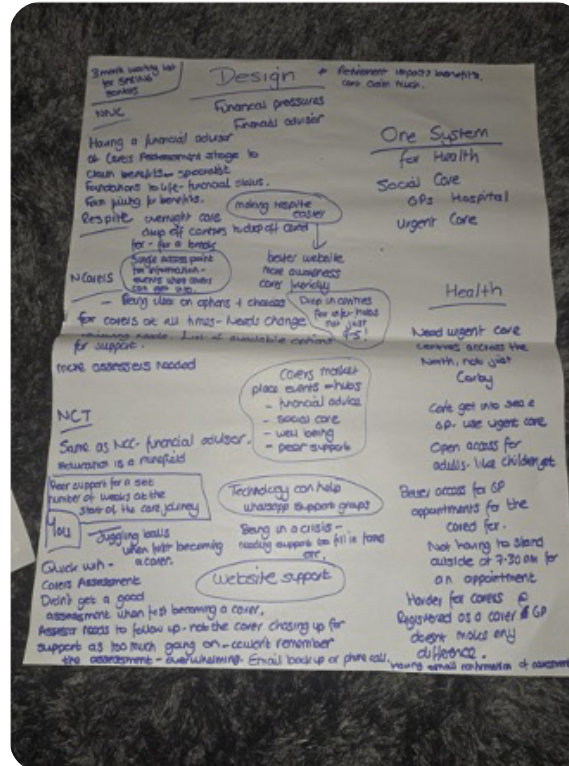 3 month waiting list
for SPRING
Design
* Retirement impacts benefits,
cant claim much.
NNC
Financial pressures
Financial advisor
Having a financial advisor
at Carers Assessment stage to
claim benefits - specialist
Foundations to life - financial status.
Form filling for benefits.
Respite overnight care
making respite
easier
drop off centres to drop off cared
for - for a break
better website
more awareness
carer friendly
Single access point
for information -
events what carers
can get into.
NCarers
- Being clear on options & choices
for carers at all times - Needs change
Drop in centres
for info - hubs
not just
9-5!
List of available options
for support.
more assessors needed
Carers market
place events - hubs
- financial advice
- social care
- well being
- peer support
NCT
Same as NCC - financial advisor.
is a minefield
Peer support for a set
number of weeks at the
start of the care journey
Technology can help
whatsapp support groups
You
Juggling balls
when first becoming
a carer.
Being in a crisis -
needing support to fill in forms
etc.
Quick win -
Carers Assessment
website support
Didn't get a good
assessment when first becoming a carer.
Assessor needs to follow up - not the carer chasing up for
support as too much going on - couldn't remember
the assessment - overwhelming. Email back up or phone call,
having email confirmation of assessment
One System
for Health
Social Care
GPs Hospital
Urgent Care
Health
Need urgent care
centres across the
North, not just
Corby
Cant get into see a
GP - use urgent care
Open access for
adults - like children get
Better access for GP
appointments for the
cared for.
Not having to stand
outside at 7:30am for
an appointment
Harder for carers
Registered as a carer @ GP
doesnt make any
difference.